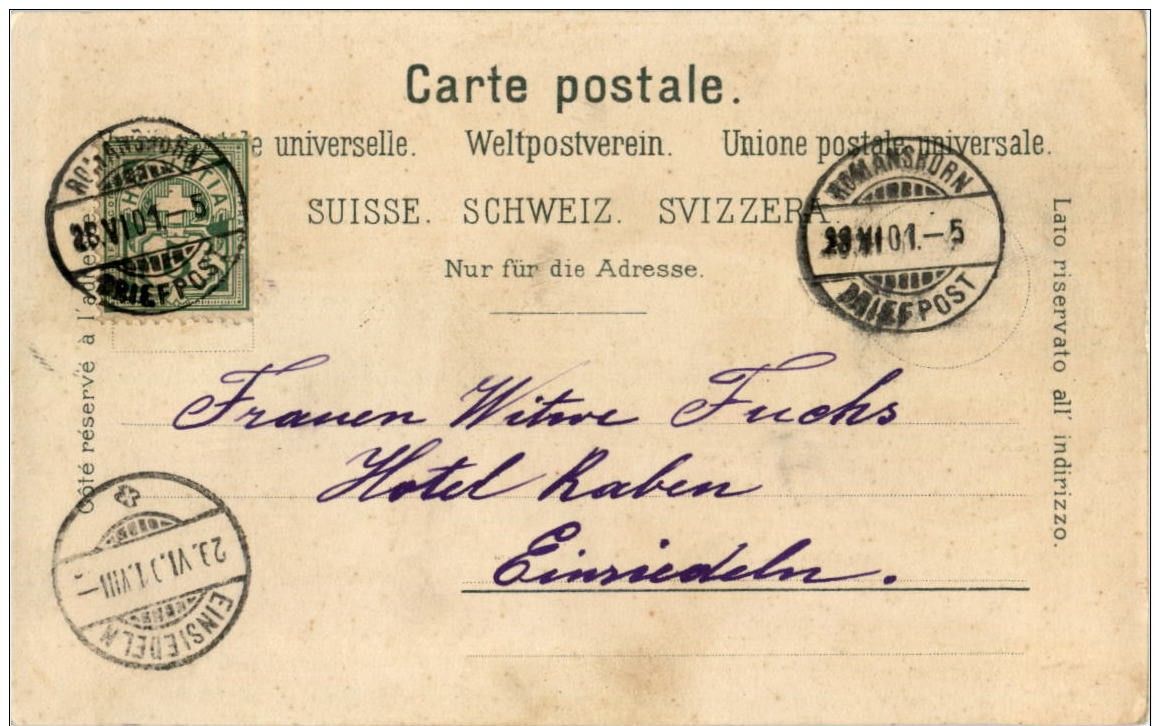 Carte postale.
e universelle. Weltpostverein. Unione postale universale.
SUISSE. SCHWEIZ. SVIZZERA.
Nur für die Adresse.
Côté réservé à l'adresse
Lato riservato all' indirizzo.
ROMANSHORN
VI 01.–5
BRIEFPOST
ROMANSHORN
VI 01.–5
BRIEFPOST
Frauen Witwe Fuchs
Hotel Raben
Einsiedeln.
VIII–
EINSIEDELN